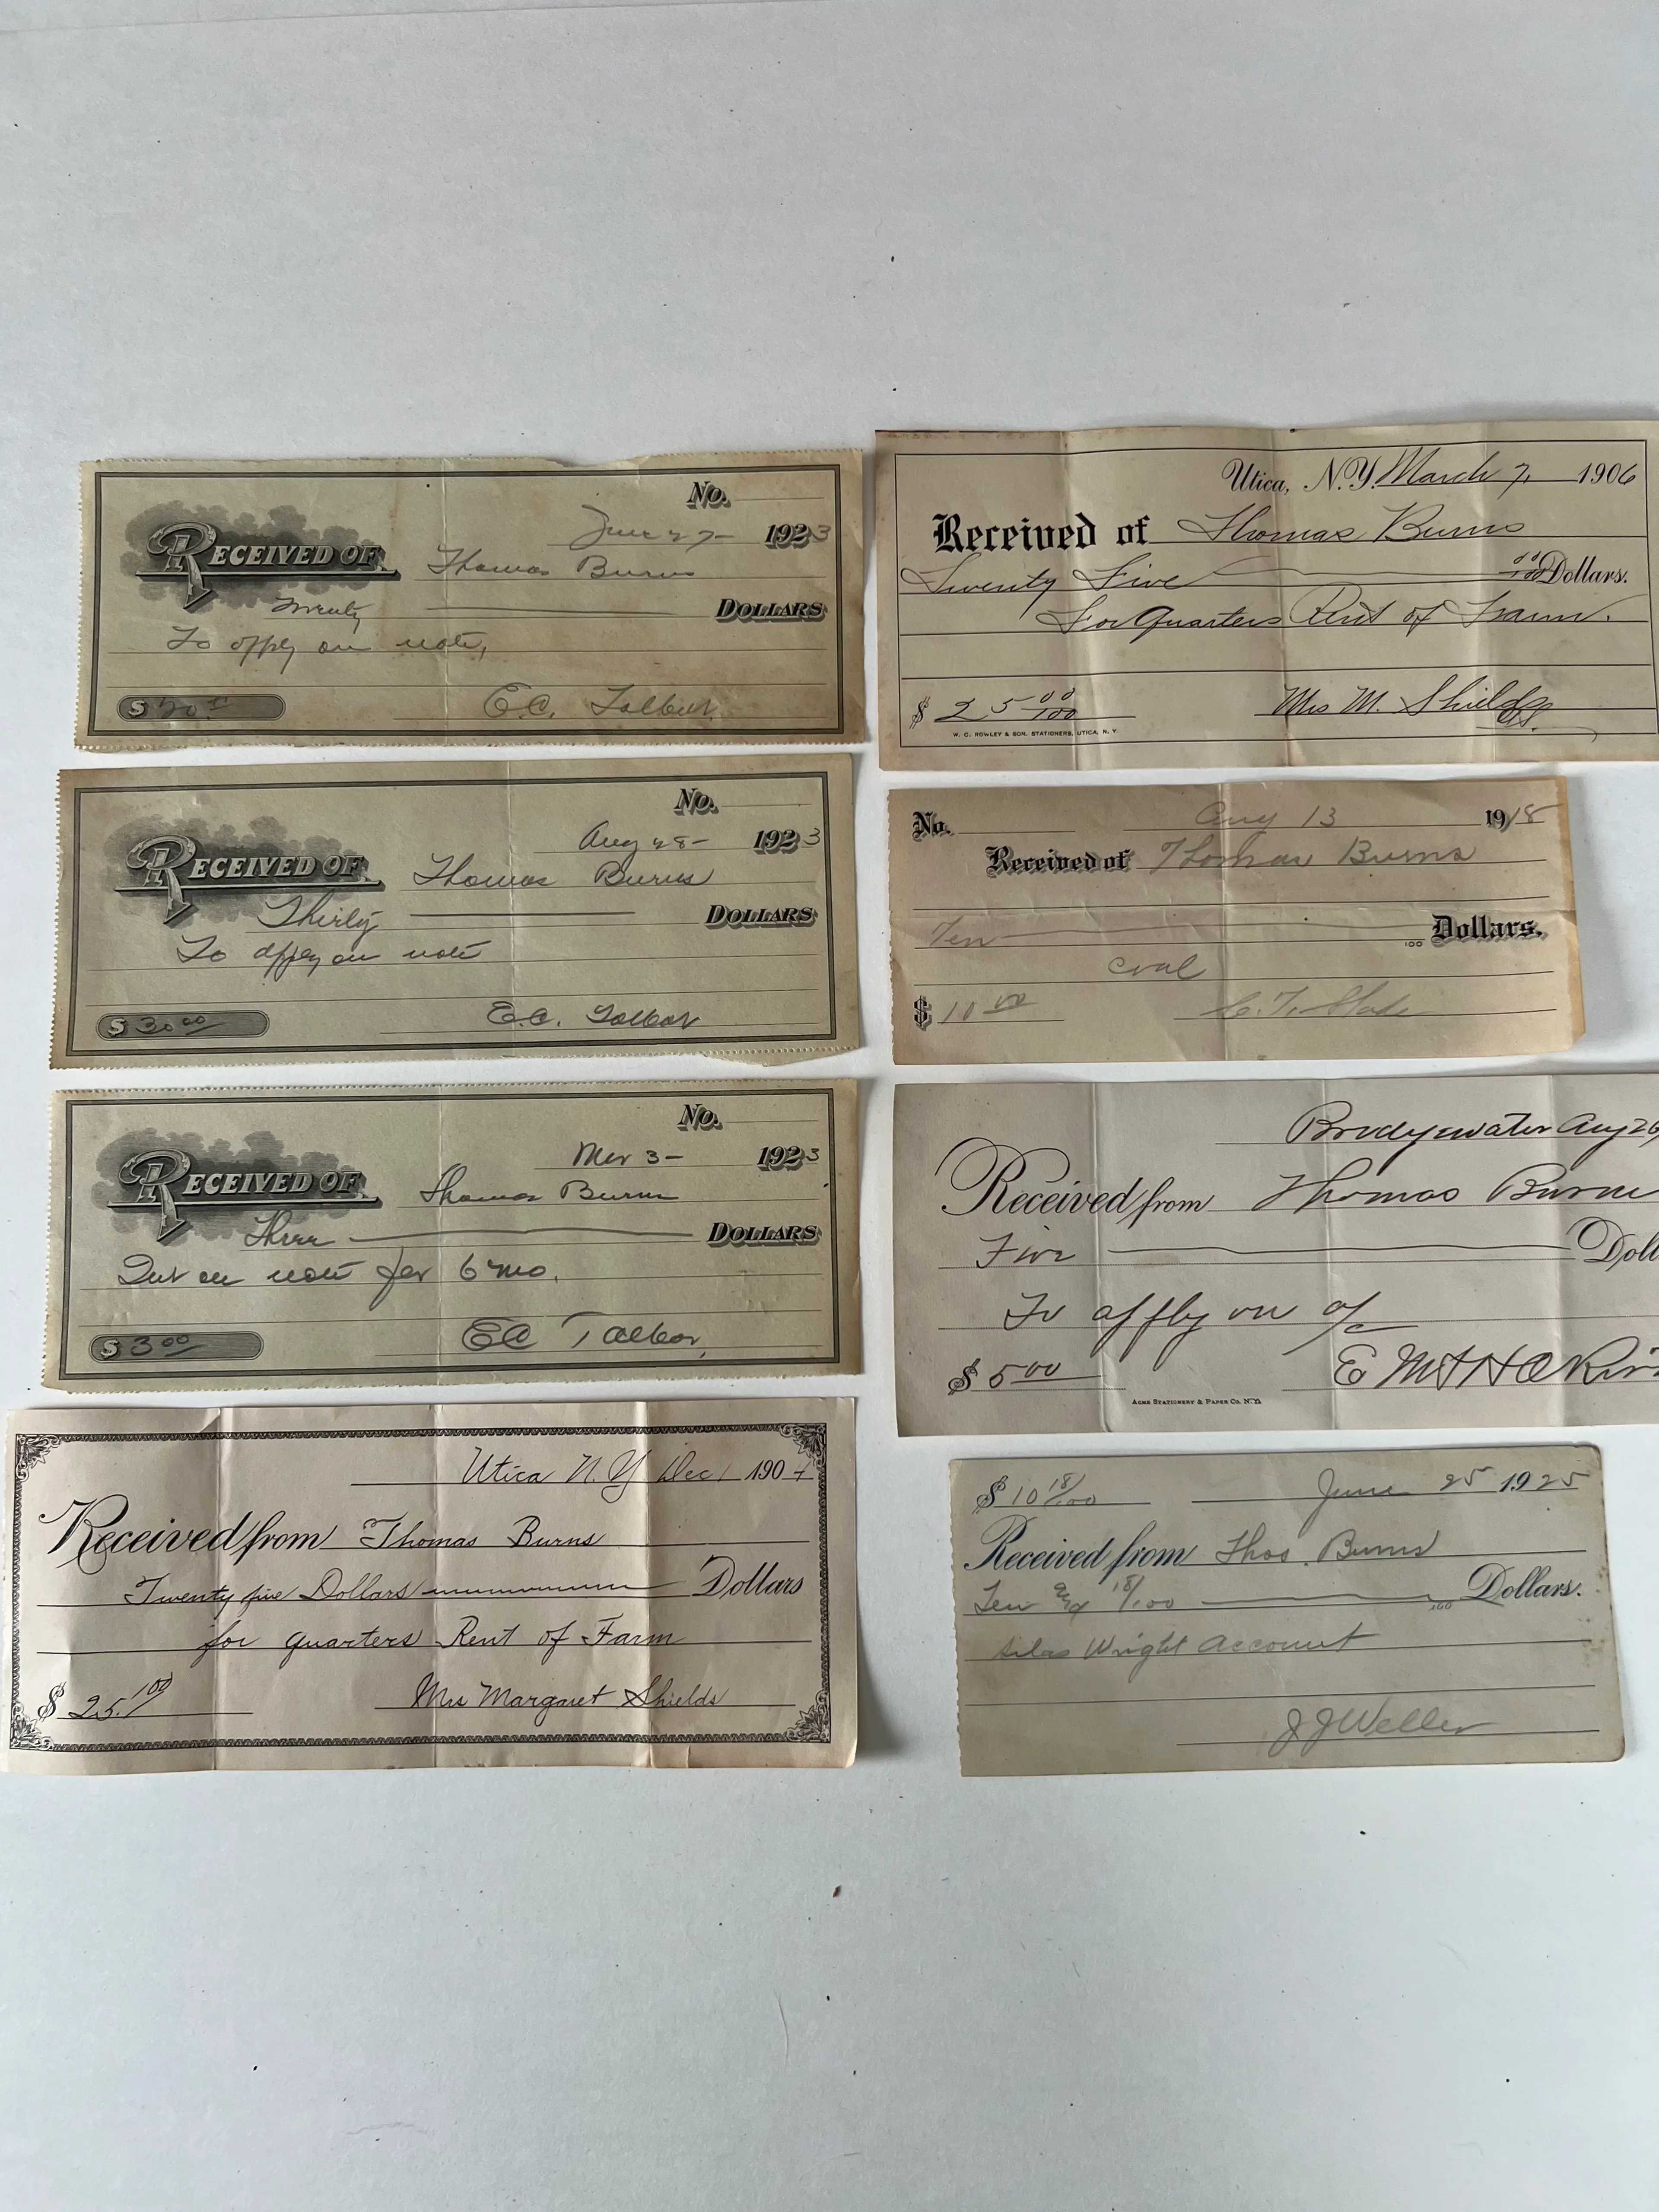 No.
June 27- 1923
RECEIVED OF Thomas Burns
Twenty DOLLARS
To apply on note,
$
E.C. Talbot
No.
Aug 28- 1923
RECEIVED OF Thomas Burns
Thirty DOLLARS
To apply on note
$ 30 00
E.C. Talbot
No.
Mar 3- 1923
RECEIVED OF Thomas Burns
Three DOLLARS
Int on note for 6 mo.
$ 3 00
EC Talbot,
Utica N.Y Dec 1 190
Received from Thomas Burns
Twenty five Dollars Dollars
for quarters Rent of Farm
$ 25.
Mrs Margaret Shields
Utica, N.Y. March 7, 1906
Received of Thomas Burns
Twenty Five 00/100 Dollars.
For Quarters Rent of Farm.
$ 25 00/100
Mrs M. Shields
W. C. ROWLEY & SON, STATIONERS, UTICA, N. Y.
No. Aug 13 1918
Received of Thomas Burns
Ten 100 Dollars.
coal
$ 10 00
Bridgewater Aug 26,
Received from Thomas Burns
Five Doll
To apply on a/c
$ 5 00
E M
ACME STATIONERY & PAPER CO. N.Y.
$ 10 18/100 June 25 1925
Received from Thos. Burns
Ten & 18/100 100 Dollars.
Silas Wright Account
J J Weller